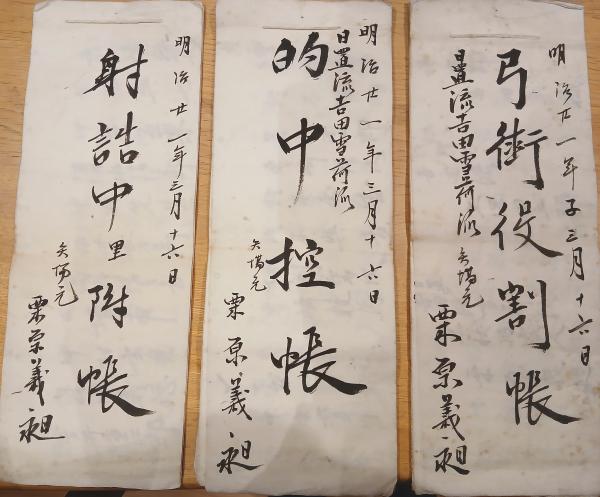 明治廿一年子三月十六日
弓術役割帳
日置流吉田雪荷派
矢場元
栗原義昶
明治廿一年三月十六日
日置流吉田雪荷派
的中控帳
矢場元
栗原義昶
明治廿一年三月十六日
射詰中里附帳
矢場元
栗原義昶